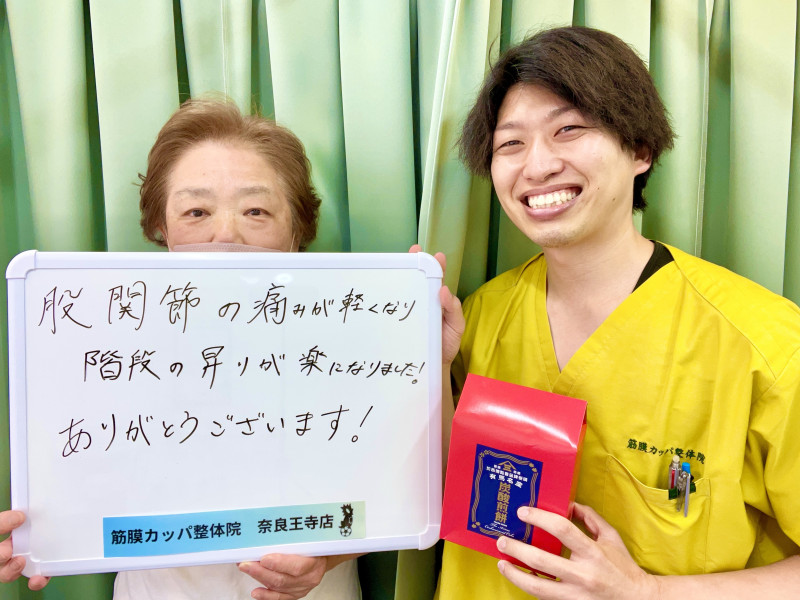 股関節の痛みが軽くなり
階段の昇りが楽になりました!
ありがとうございます!
筋膜カッパ整体院 奈良王寺店
筋膜カッパ整体院
有馬名産
炭酸煎餅